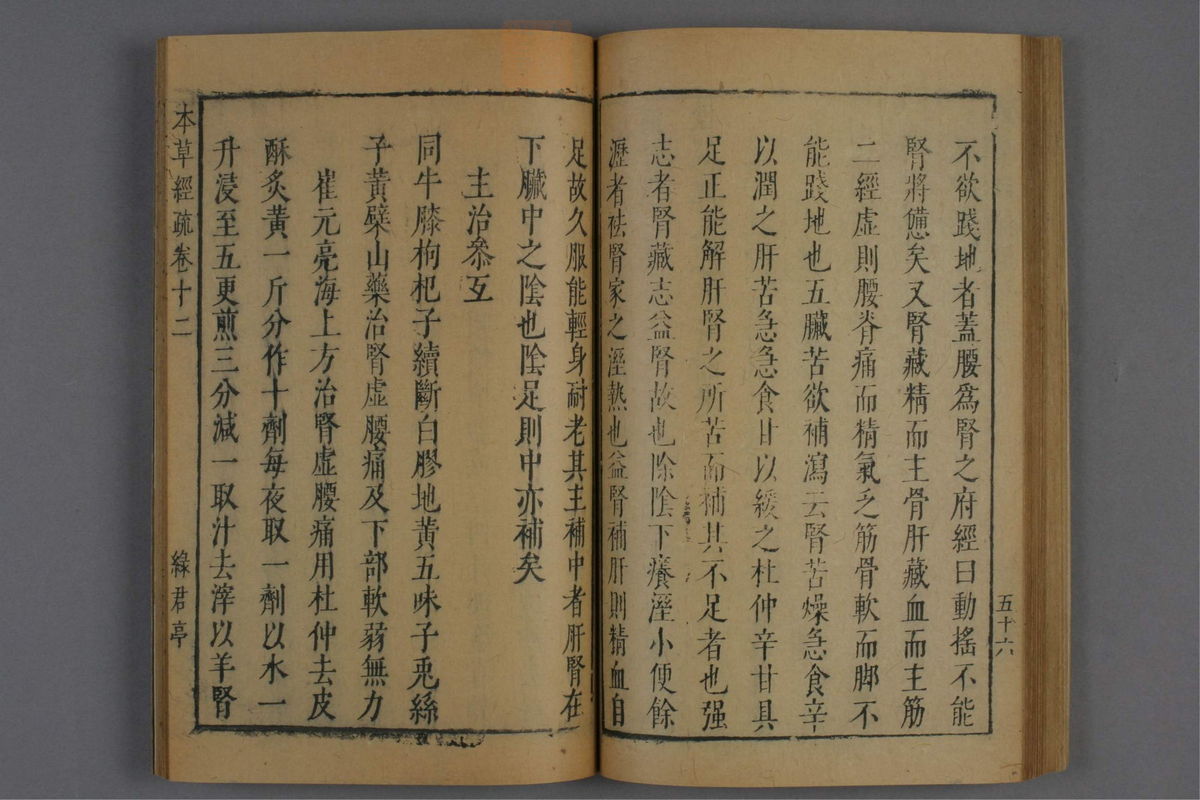 五十六
不欲踐地者蓋腰爲腎之府經曰動搖不能
腎將憊矣又腎藏精而主骨肝藏血而主筋
二經虛則腰脊痛而精氣乏筋骨軟而脚不
能踐地也五臟苦欲補瀉云腎苦燥急食辛
以潤之肝苦急急食甘以緩之杜仲辛甘具
足正能解肝腎之所苦而補其不足者也强
志者腎藏志益腎故也除陰下癢溼小便餘
瀝者袪腎家之溼熱也益腎補肝則精血自
足故久服能輕身耐老其主補中者肝腎在
下臟中之陰也陰足則中亦補矣
主治叅互
同牛膝枸杞子續斷白膠地黃五味子兎絲
子黃檗山藥治腎虛腰痛及下部軟弱無力
崔元亮海上方治腎虛腰痛用杜仲去皮
酥炙黃一斤分作十劑每夜取一劑以水一
升浸至五更煎三分減一取汁去滓以羊腎
本草經疏卷十二
綠君亭